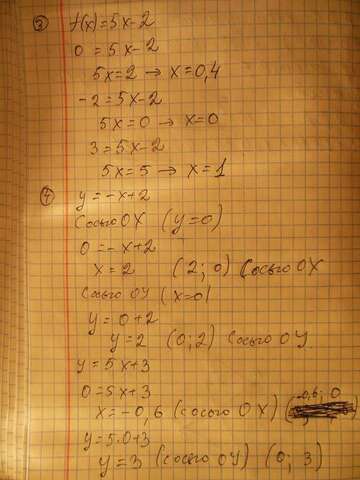 ③ f(x)=5x-2
0=5x-2
5x=2 → x=0,4
-2=5x-2
5x=0 → x=0
3=5x-2
5x=5 → x=1
④ y=-x+2
C осью OX (y=0)
0=-x+2
x=2 (2; 0) C осью OX
C осью OY (x=0)
y=0+2
y=2 (0; 2) C осью OY
y=5x+3
0=5x+3
x=-0,6 (с осью OX) (-0,6; 0
y=5·0+3
y=3 (с осью OY) (0; 3)